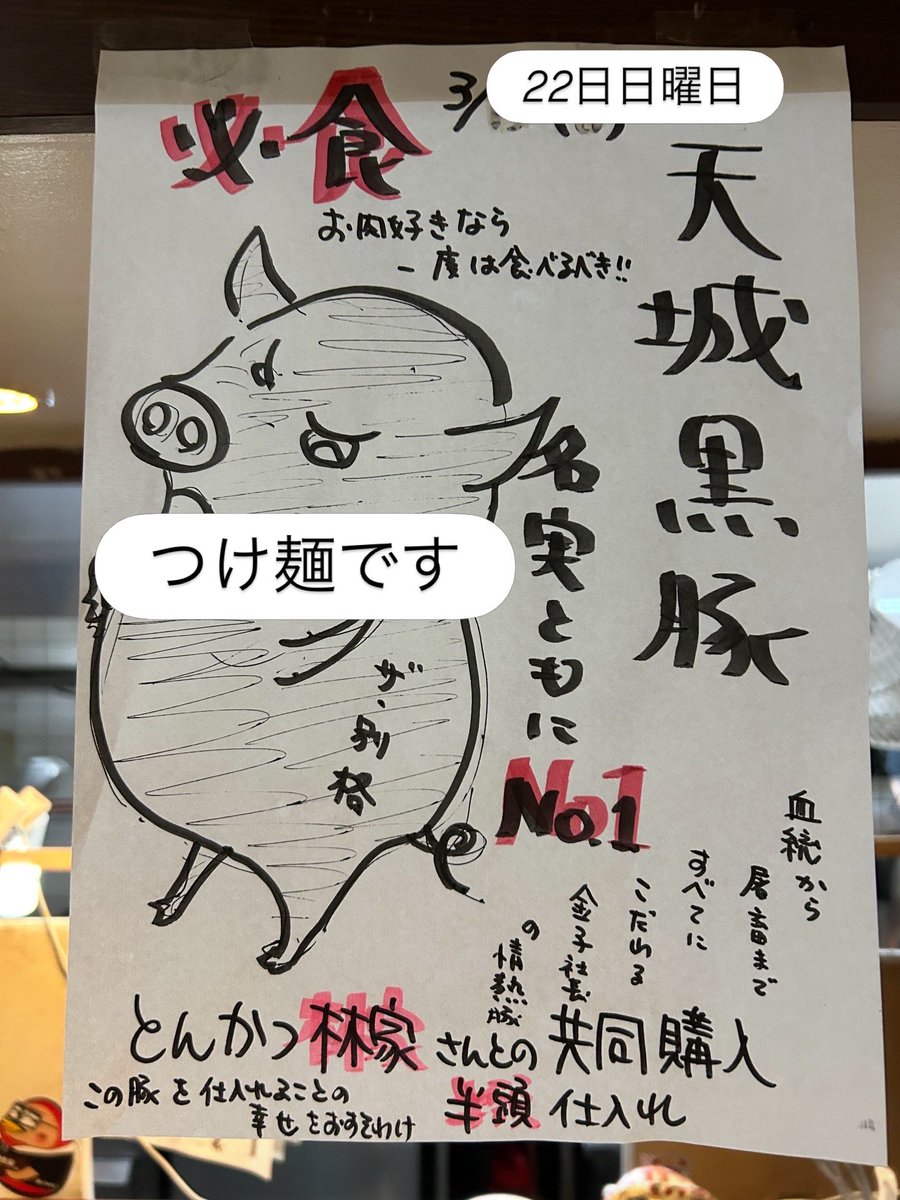 必・食
3/
22日日曜日
お肉好きなら
一度は食べるべき!!
天城黒豚
名実ともに
No.1
つけ麺です
ザ・別格
血統から
屠畜まで
すべてに
こだわる
金子社長
の
情熱豚
とんかつ林家さんとの共同購入
この豚を仕入れることの
幸せをおすそわけ
半頭仕入れ